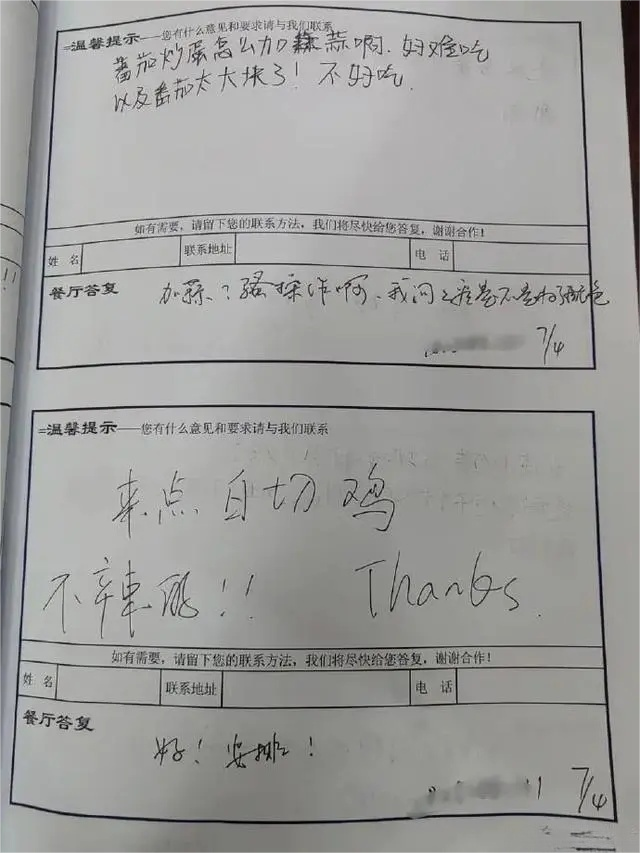 =温馨提示——您有什么意见和要求请与我们联系
番茄炒蛋怎么加蒜啊. 好难吃
以及番茄太大块了! 不好吃.
如有需要，请留下您的联系方法，我们将尽快给您答复，谢谢合作！
姓 名 联系地址 电 话
餐厅答复
加蒜? 骚操作啊、我问
7/4
=温馨提示——您有什么意见和要求请与我们联系
来点白切鸡
不辣 !!
Thanks.
如有需要，请留下您的联系方法，我们将尽快给您答复，谢谢合作！
姓 名 联系地址 电 话
餐厅答复
好! 安排!
7/4